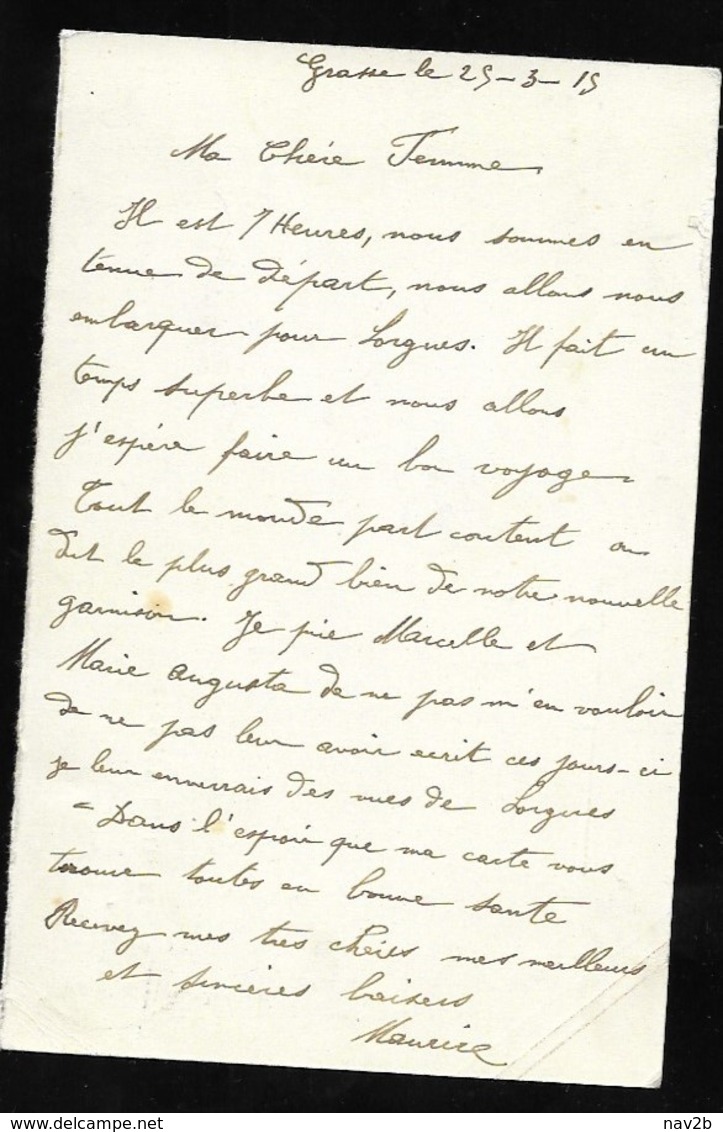 Grasse le 25-3-15
Ma Chére Femme
Il est 7 Heures, nous sommes en
tenue de départ, nous allons nous
embarquer pour Lorgues. Il fait un
temps superbe et nous allons
j'espére faire un bon voyage.
Tout le monde part content on
dit le plus grand bien de notre nouvelle
garnison. Je prie Marcelle et
Marie Augusta de ne pas m'en vouloir
de ne pas leur avoir ecrit ces jours-ci
je leur enverrais des vues de Lorgues
- Dans l'espoir que ma carte vous
trouve toutes en bonne sante
Recevez mes tres chéres mes meilleurs
et sinceres baisers
Maurice
Delcampe.net
nav2b